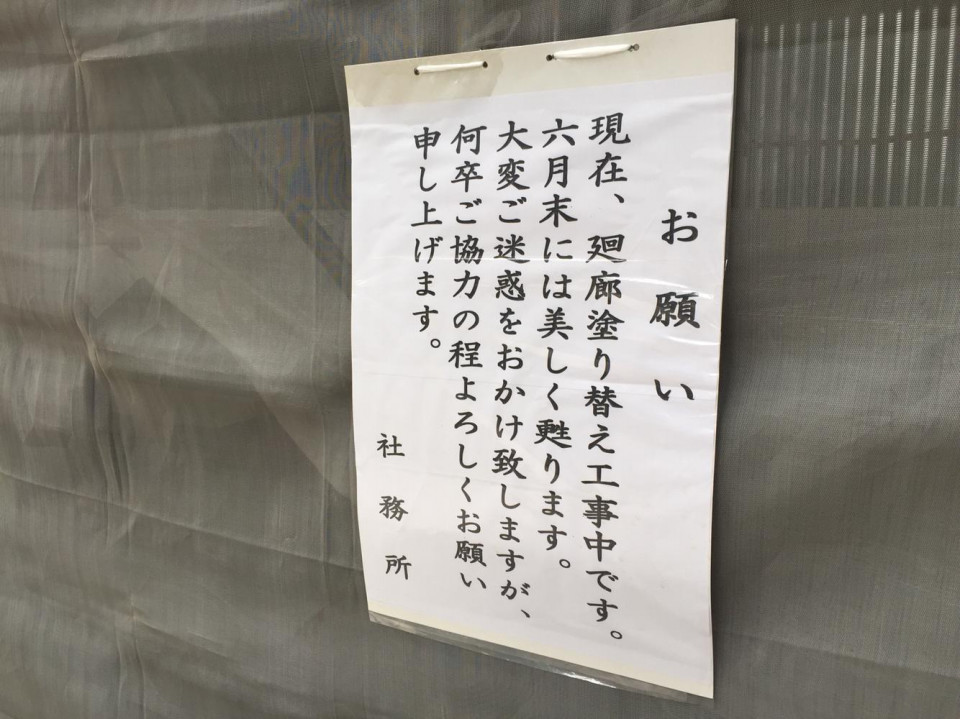 お願い
現在、廻廊塗り替え工事中です。
六月末には美しく甦ります。
大変ご迷惑をおかけ致しますが、
何卒ご協力の程よろしくお願い
申し上げます。
社務所